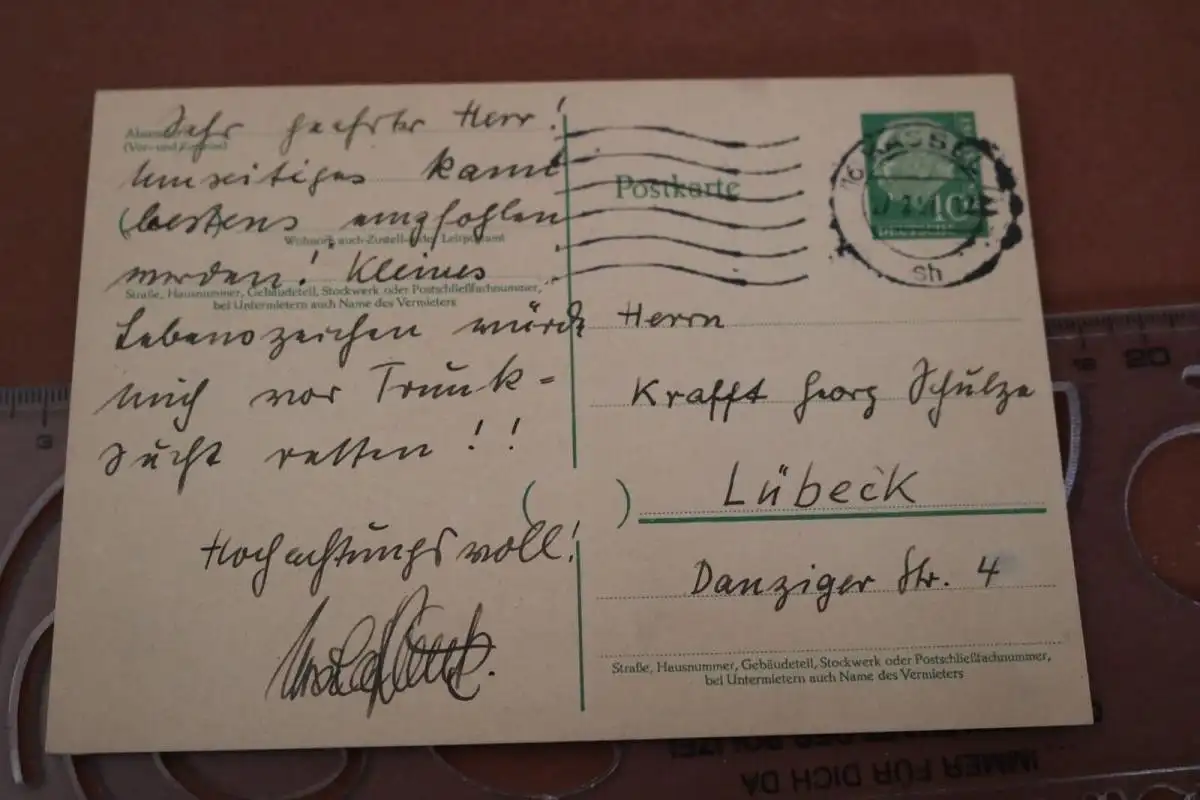 Sehr geehrter Herr!
Umseitiges kann
bestens empfohlen
werden! Kleines
Lebenszeichen würde
mich vor Trunk-
sucht retten!!
Hochachtungsvoll!
(Vor- und Zuname)
Wohnort, auch Zustell- oder Leitpostamt
Straße, Hausnummer, Gebäudeteil, Stockwerk oder Postschließfachnummer,
bei Untermietern auch Name des Vermieters
Postkarte
KASSEL
10
sh
Herrn
Krafft Georg Schulze
Lübeck
Danziger Str. 4
Straße, Hausnummer, Gebäudeteil, Stockwerk oder Postschließfachnummer,
bei Untermietern auch Name des Vermieters
IMMER FÜR DICH DA